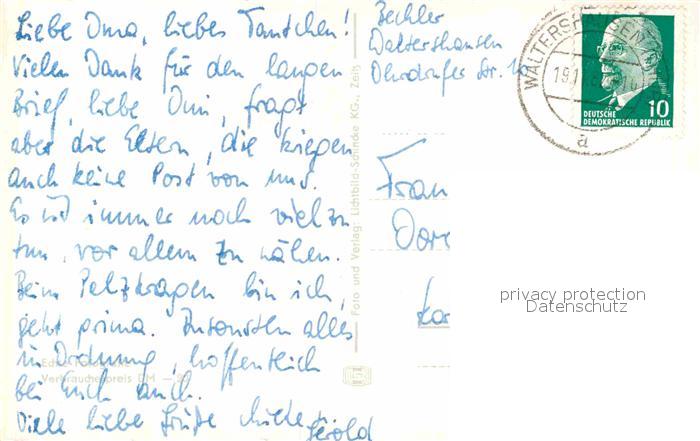 Liebe Oma, liebes Tantchen!
Vielen Dank für den langen
Brief, liebe Omi, fragt
aber die Eltern, die kriegen
auch keine Post von uns.
Es ist immer noch viel zu
tun, vor allem zu nähen.
Beim Pelzkragen bin ich,
geht prima. Ansonsten alles
in Ordnung, hoffentlich
bei Euch auch.
Viele liebe Grüße
Foto und Verlag: Lichtbild-Schincke KG., Zeitz
Verbraucherpreis DM
Bechler
Waltershausen
Ohrdrufer Str.
WALTERSHAUSEN
a
DEUTSCHE
DEMOKRATISCHE REPUBLIK
10
Frau
privacy protection
Datenschutz